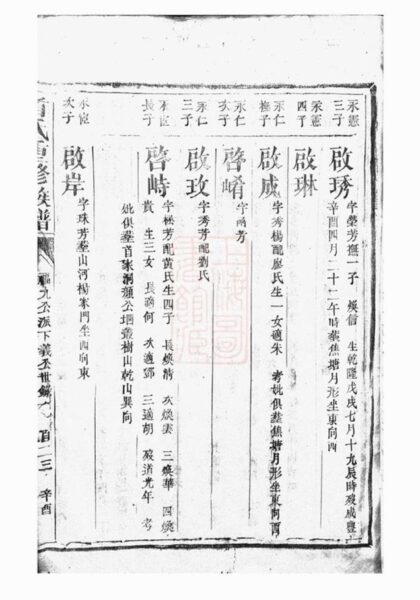 永憲
三子
啟琇
字瑩芳撫一子 煥信 生乾隆戊戌七月十九辰時歿咸豐
辛酉四月二十二午時葬焦塘月形坐東向西
永憲
四子
啟琳
永仁
撫子
啟咸
字秀楊配盧氏生一女適朱 考妣俱葬焦塘月形坐東向酉
永仁
次子
啓崤
字芳
永仁
三子
啟玫
字秀芳配劉氏
長子
啓峙
字松芳配黃氏生四子 長煥清 次煥雲 三煥華 四煥
貴 生三女 長適何 次適鄧 三適胡 歿道光年 考
妣俱葬首家洞公叢樹山乾山巽向
次子
啟岸
字珠芳葬山河楊家門坐西向東
氏重修族譜
九公派下義公世錄
百二三
辛酉